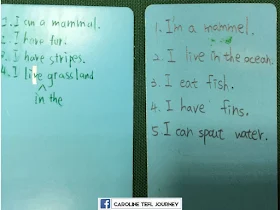 1. I am a mammal.
2. I have fur.
3. I have stripes.
4. I live grassland
in the
1. I'm a mammel.
2. I live in the ocean.
3. I eat fish.
4. I have fins.
5 I can spout water.
CAROLINE TEFL JOURNEY